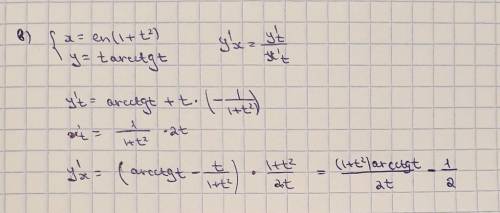 в) { x = ln(1+t²)     y'x = y't / x't
y = t arcctg t
y't = arcctg t + t · (- 1/(1+t²))
x't = 1/(1+t²) · 2t
y'x = (arcctg t - t/(1+t²)) · (1+t²)/2t = (1+t²) arcctg t / 2t - 1/2